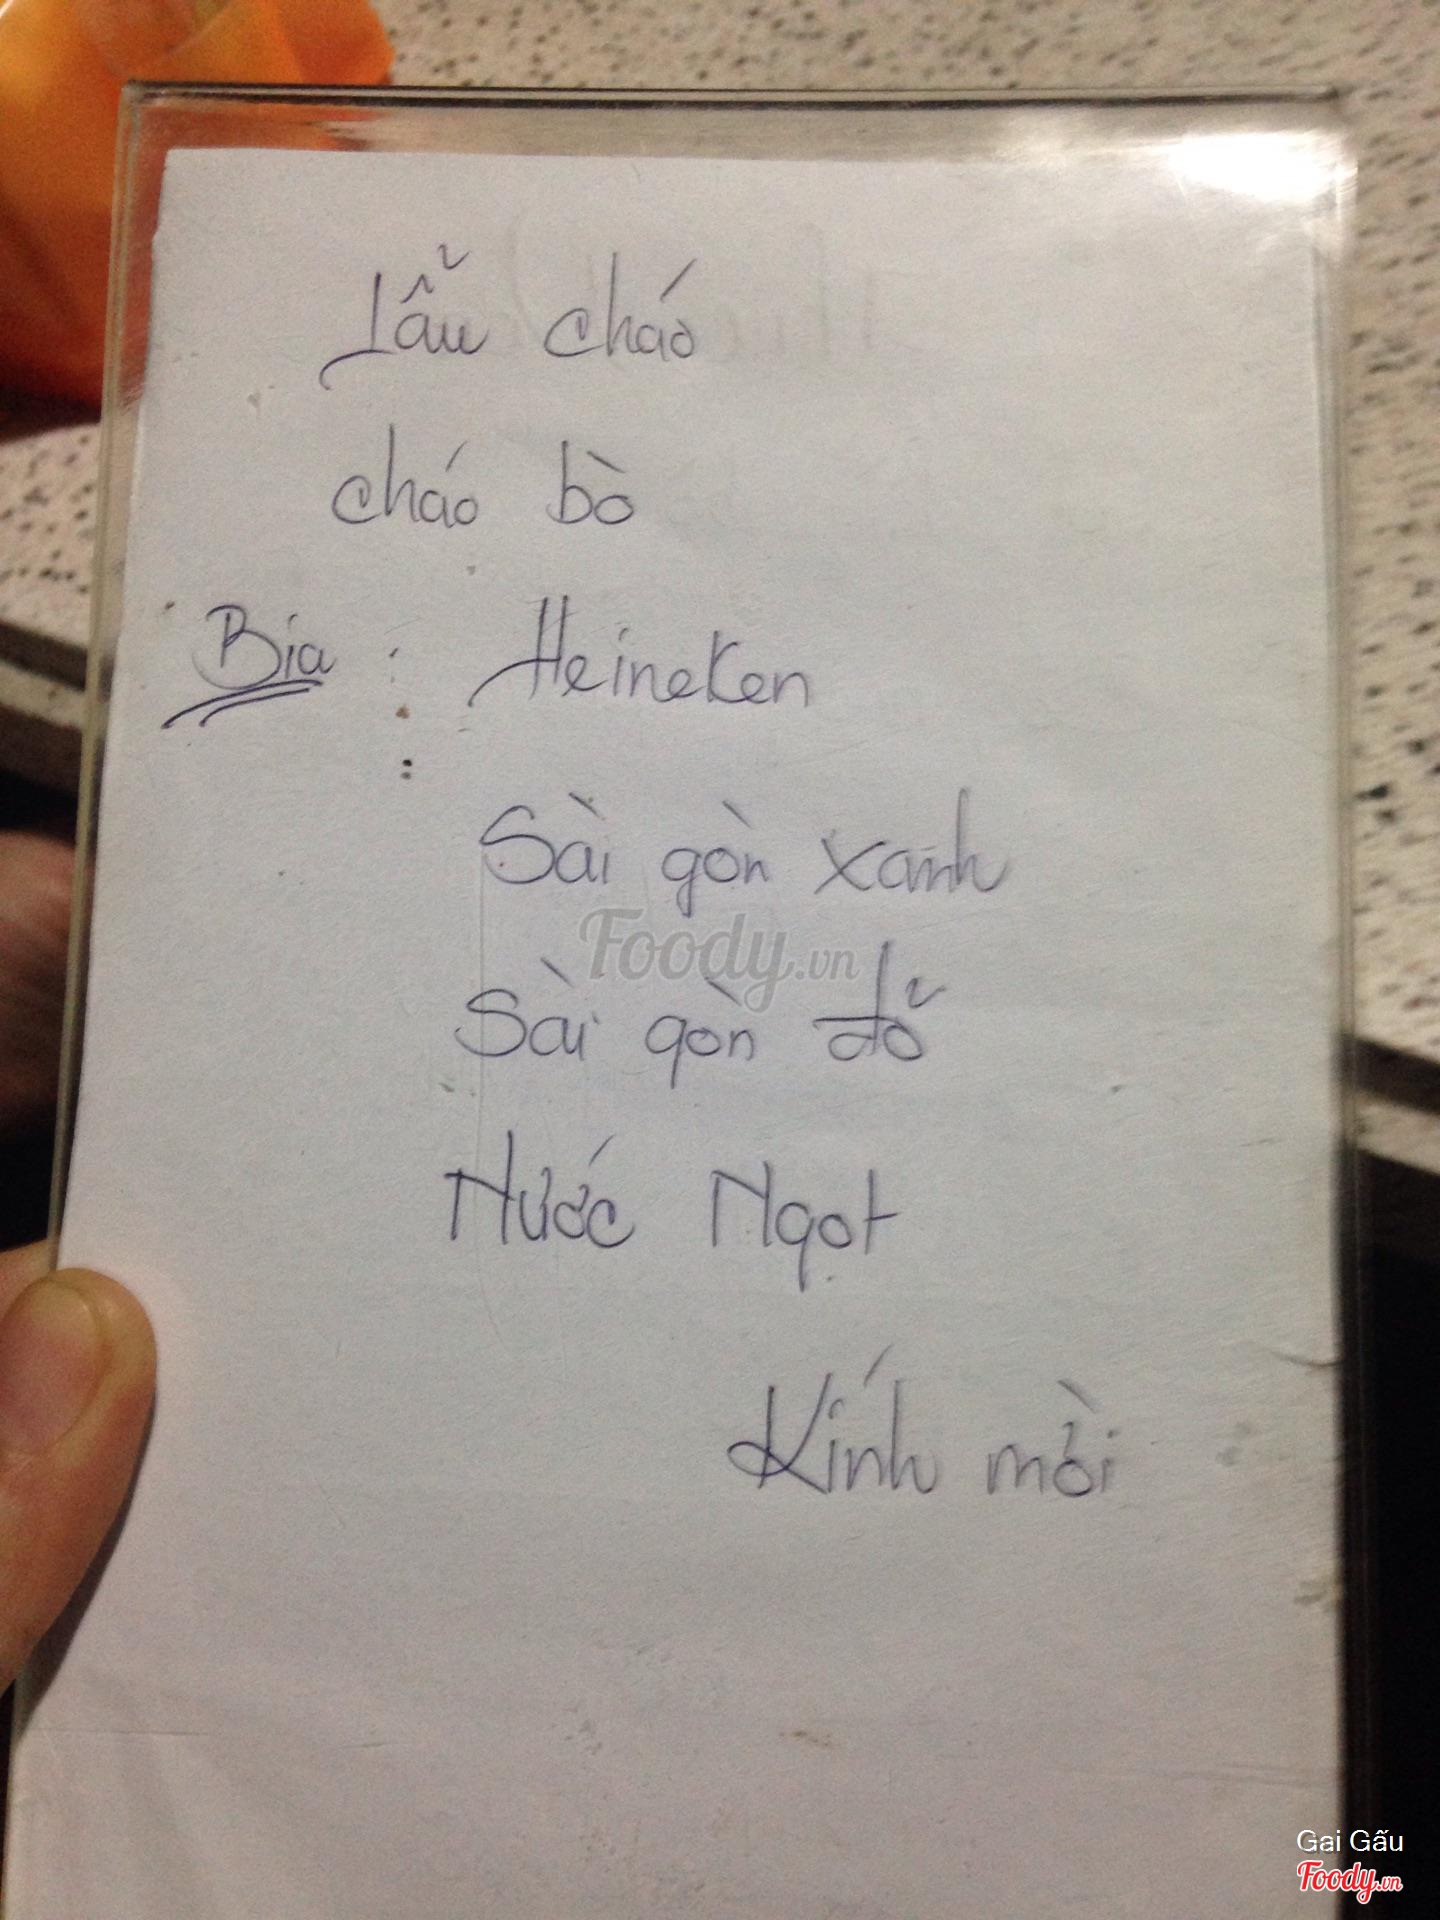 Lẩu cháo
cháo bò
Bia : Heineken
Sài gòn xanh
Foody.vn
Sài gòn đỏ
Nước Ngọt
Kính mời
Gai Gấu
Foody.vn